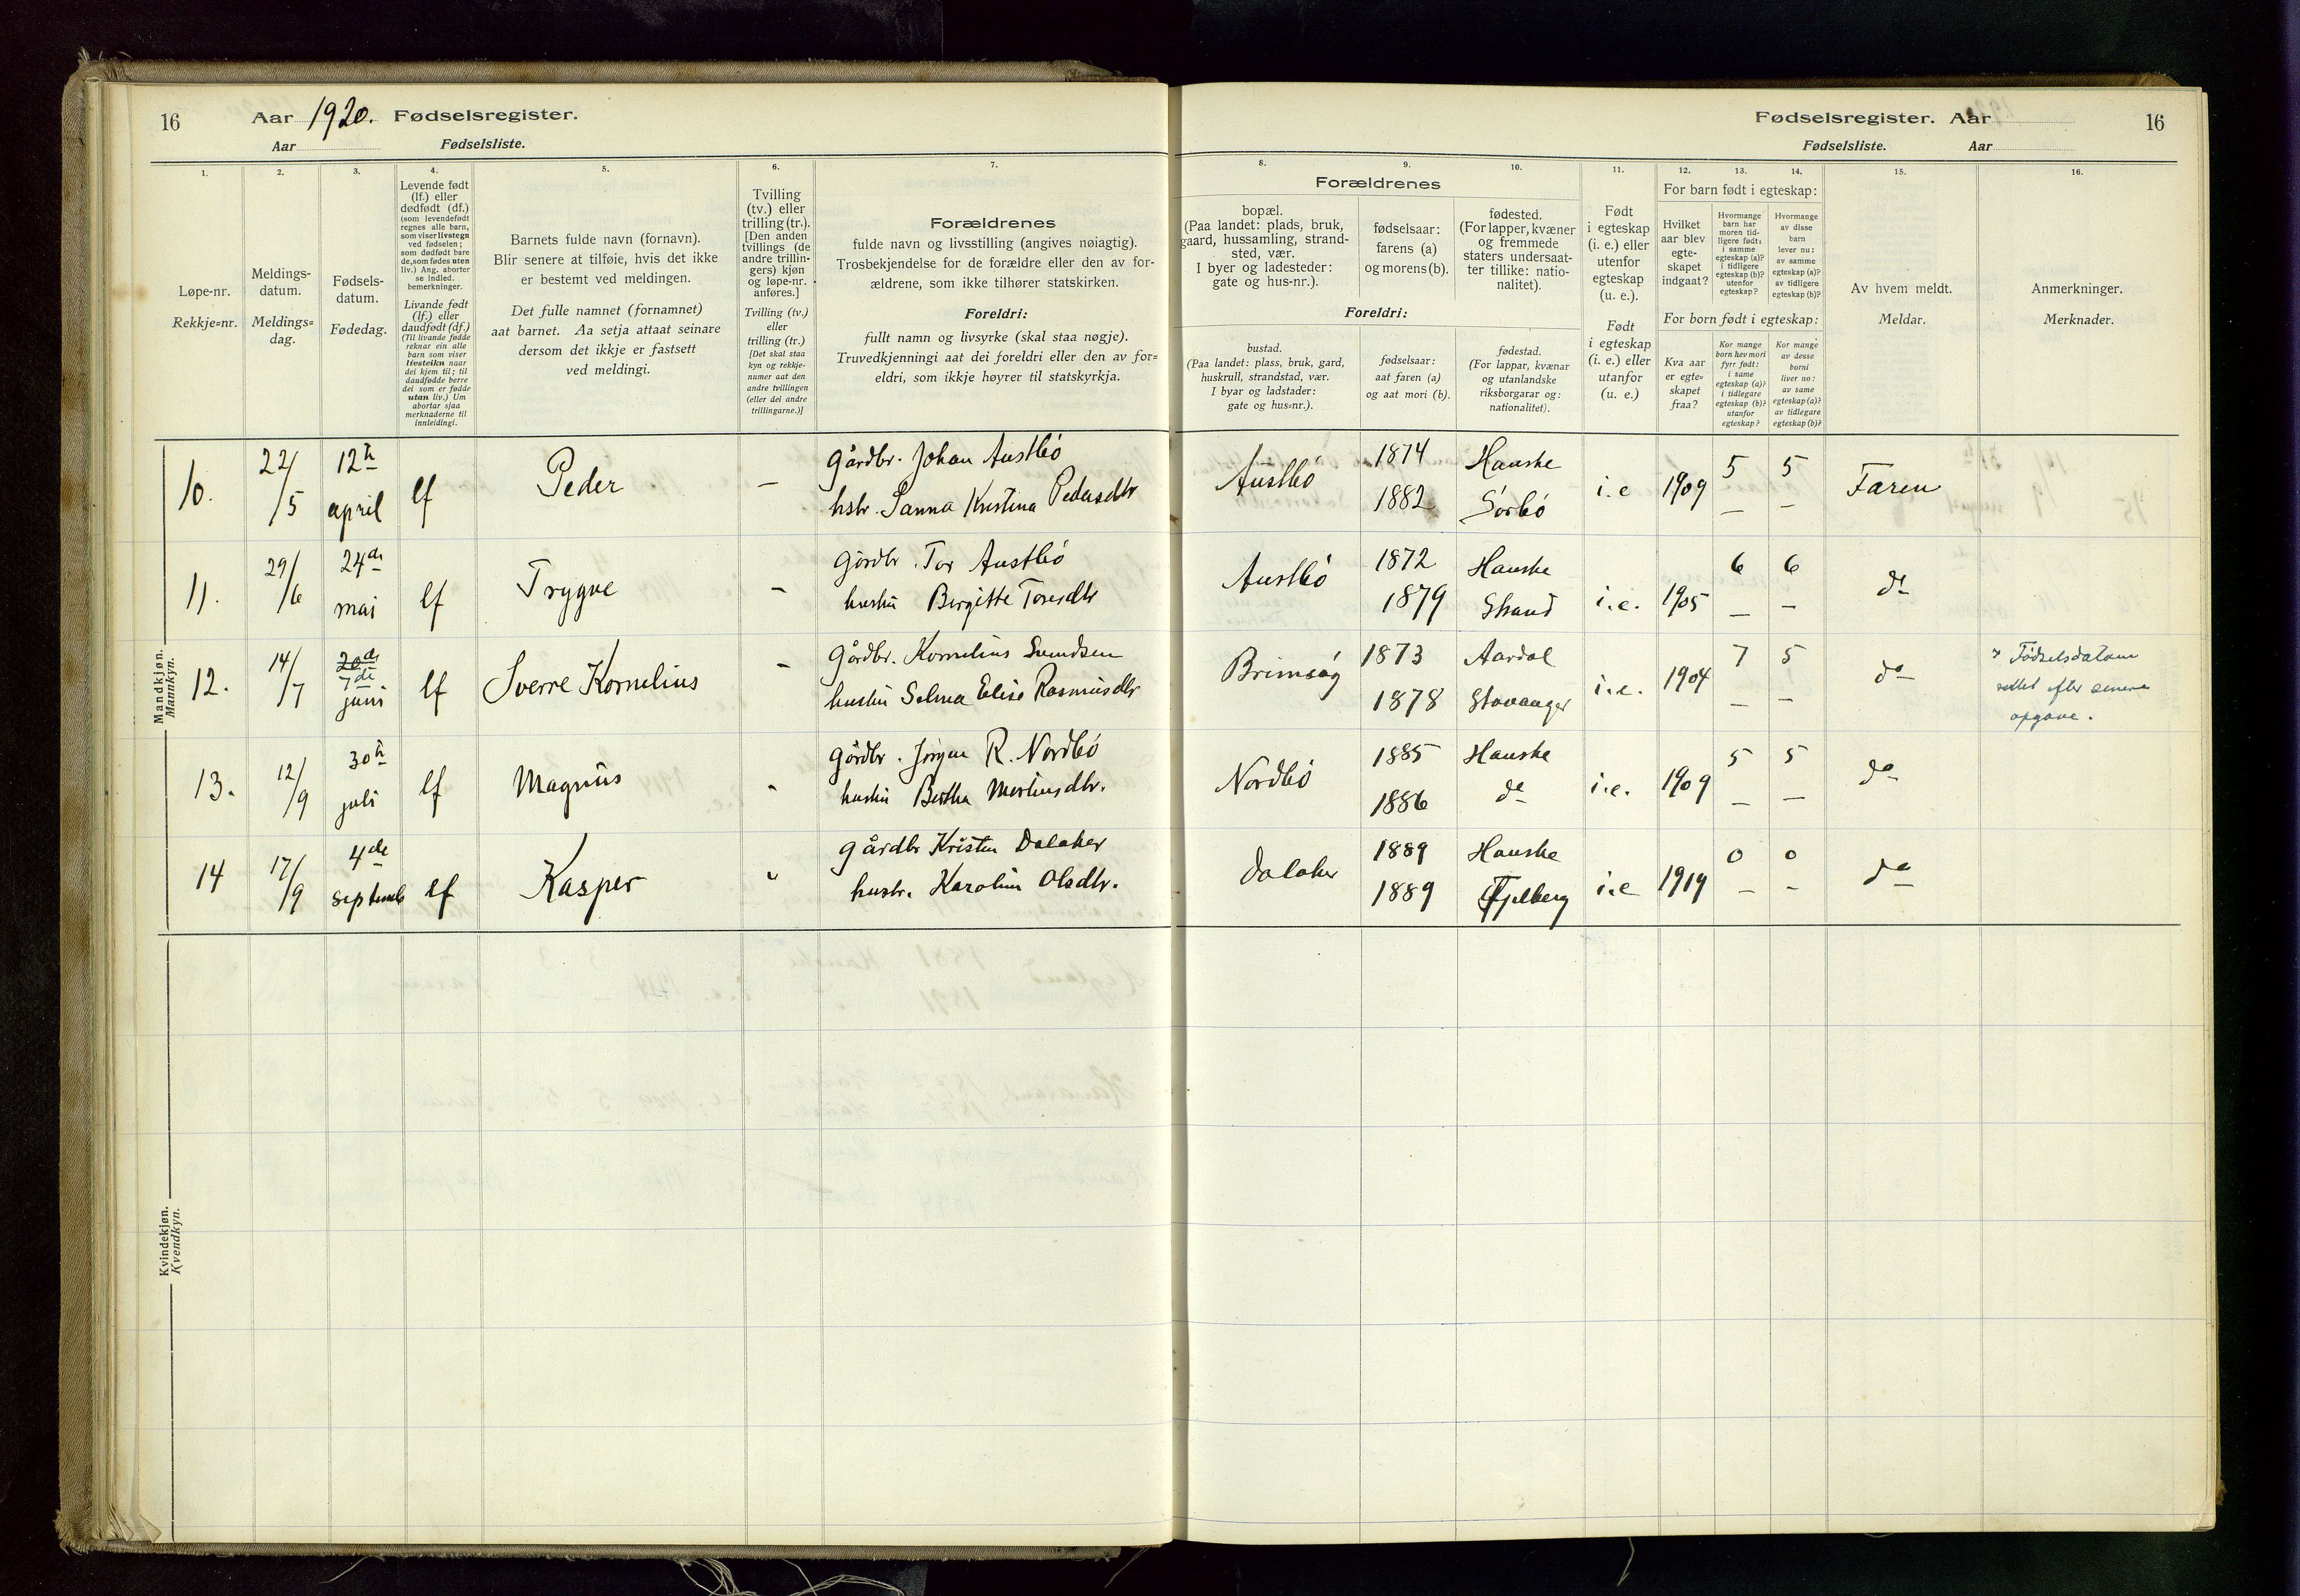 16 Aar 1920. Fødselsregister.
Aar Fødselsliste.
Fødselsregister. Aar 16
Fødselsliste. Aar
1. 2. 3. 4. 5. 6. 7. 8. 9. 10. 11. 12. 13. 14. 15. 16.
Løpe-nr.
Rekkje=nr.
Meldings-
datum.
Meldings=
dag.
Fødsels-
datum.
Fødedag.
Levende født
(lf.) eller
dødfødt (df.)
(som levendefødt
regnes alle barn,
som viser livstegn
ved fødselen;
som dødfødt bare
de, som fødes uten
liv.) Ang. aborter
se indled.
bemerkninger.
Livande født
(lf.) eller
daudfødt (df.)
(Til livande fødde
reknar ein alle
barn som viser
livsteikn naar
dei kjem til; til
daudfødde berre
dei som er fødde
utan liv.) Um
abortar sjaa
merknaderne til
innleidingi.
Barnets fulde navn (fornavn).
Blir senere at tilføie, hvis det ikke
er bestemt ved meldingen.
Det fulle namnet (fornamnet)
aat barnet. Aa setja attaat seinare
dersom det ikkje er fastsett
ved meldingi.
Tvilling
(tv.) eller
trilling (tr.).
[Den anden
tvillings (de
andre trillin-
gers) kjøn
og løpe-nr.
anføres.]
Tvilling (tv.)
eller
trilling (tr.)
[Det skal staa
kyn og rekkje-
numer aat den
andre tvillingen
(eller dei andre
trillingarne.)]
Forældrenes
fulde navn og livsstilling (angives nøiagtig).
Trosbekjendelse for de forældre eller den av for-
ældrene, som ikke tilhører statskirken.
Foreldri:
fullt namn og livsyrke (skal staa nøgje).
Truvedkjenningi aat dei foreldri eller den av for=
eldri, som ikkje høyrer til statskyrkja.
Forældrenes
bopæl.
(Paa landet: plads, bruk,
gaard, hussamling, strand-
sted, vær.
I byer og ladesteder:
gate og hus-nr.).
fødselsaar:
farens (a)
og morens (b).
fødested.
(For lapper, kvæner
og fremmede
staters undersaat-
ter tillike: natio-
nalitet).
Foreldri:
bustad.
(Paa landet: plass, bruk, gard,
huskrull, strandstad, vær.
I byar og ladstader:
gate og hus=nr.).
fødselsaar:
aat faren (a)
og aat mori (b).
fødestad.
(For lappar, kvænar
og utanlandske
riksborgarar og:
nationalitet).
Født
i egteskap
(i. e.) eller
utenfor
egteskap
(u. e.).
Født
i egteskap
(i. e.) eller
utanfor
(u. e.)
For barn født i egteskap:
Hvilket
aar blev
egte-
skapet
indgaat?
Hvormange
barn har
moren tid-
ligere født:
i samme
egteskap (a)?
i tidligere
egteskap (b)?
utenfor
egteskap?
Hvormange
av disse
barn
lever nu:
av samme
egteskap (a)?
av tidligere
egteskap (b)?
For born født i egteskap:
Kva aar
er egte=
skapet
fraa?
Kor mange
born hev mori
fyrr født:
i same
egteskap (a)?
i tidlegare
egteskap (b)?
utanfor
egteskap?
Kor mange
av desse
borni
liver no:
av same
egteskap (a)?
av tidlegare
egteskap (b)?
Av hvem meldt.
Meldar.
Anmerkninger.
Merknader.
Mandkjøn.
Mannkyn.
10. 22/5 12te april lf Peder — Gårdbr. Johan Austbø
hstr. Sanna Kristina Pedersdtr
Austbø 1874 Hauske i.e 1909 5 5 Faren
1882 Sørbø — —
11. 29/6 24de mai lf Trygve - Gårdbr. Tor Austbø
hustru Birgitte Toresdtr
Austbø 1872 Hauske i.e. 1905 6 6 do
1879 Strand — —
12. 14/7 20de 7de juni lf Sverre Kornelius - Gårdbr. Kornelius Svendsen
hustru Selma Elise Rasmusdtr
Brimsøg 1873 Aardal i.e. 1904 7 5 do Fødselsdatum
1878 Stavanger — — rettet efter senere
opgave.
13. 12/9 30te juli lf Magnus " Gårdbr. Jørgen R. Nordbø
hustru Bertha Mortinsdtr.
Nordbø 1885 Hauske i.e. 1909 5 5 do
1886 do — —
14 17/9 4de septemb lf Kasper " Gårdbr Kristen Dalaker
hustr. Karolin Olsdtr.
Dalaker 1889 Hauske i.e 1919 0 0 do
1889 Fjelberg — -
Kvindekjøn.
Kvendkyn.